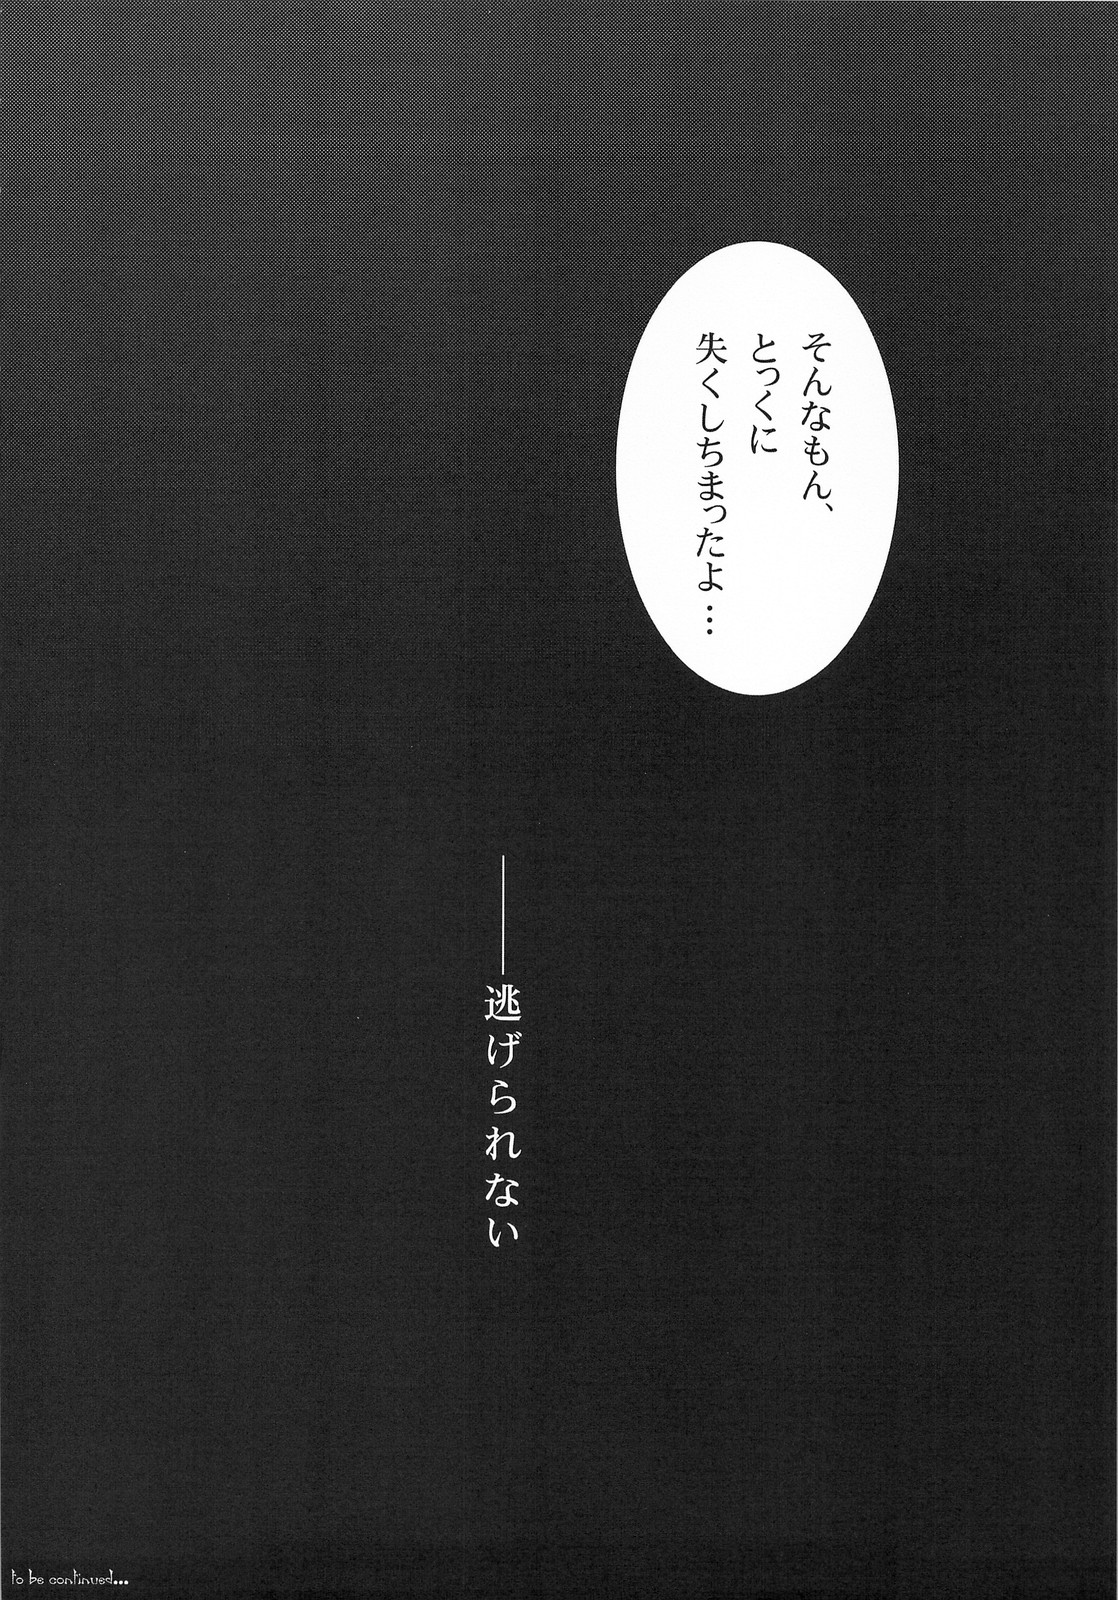 そんなもん、
とっくに
失くしちまったよ…
――逃げられない
to be continued...